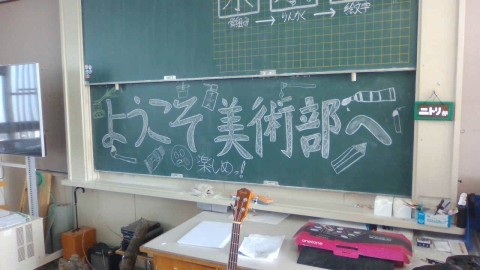 りんかく
絵文字
ようこそ美術部へ
楽しめっ!